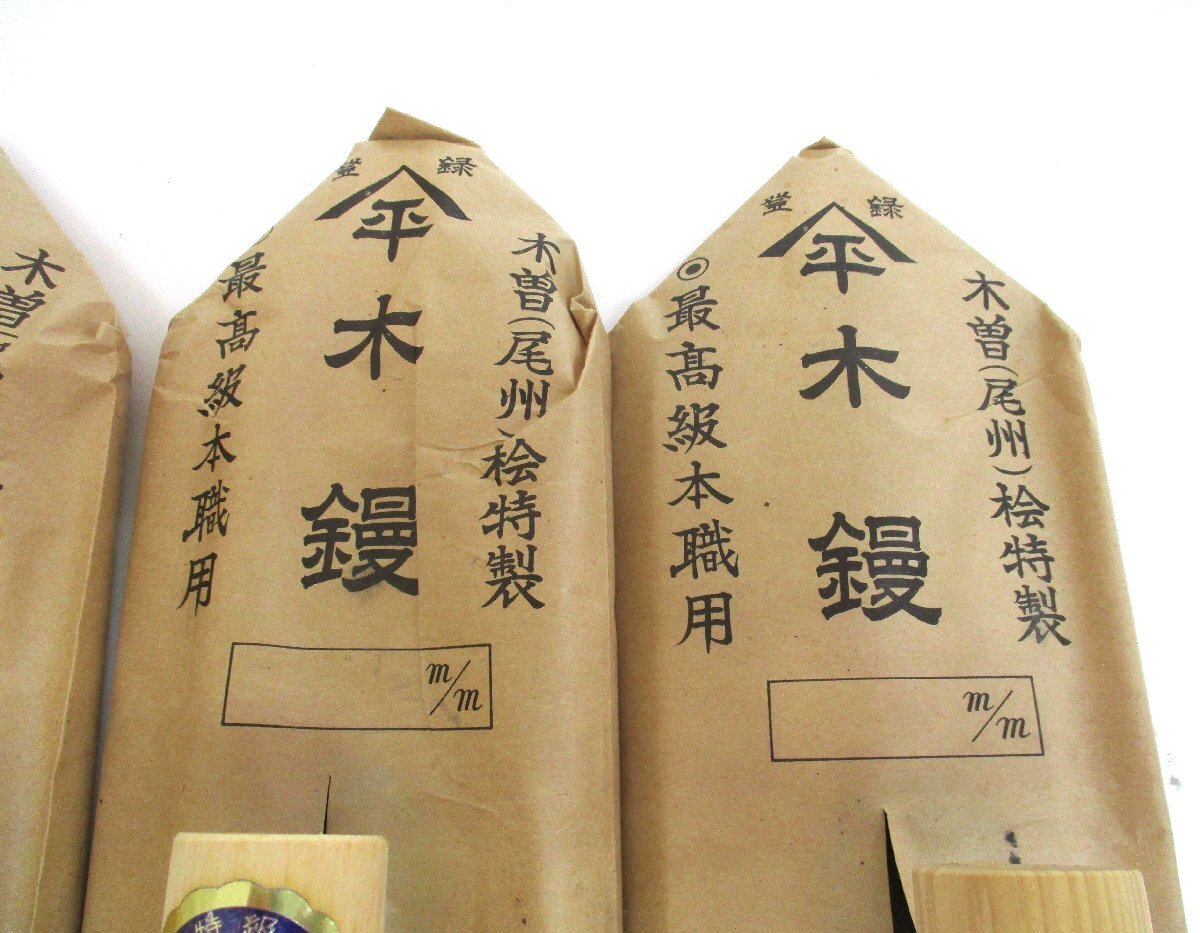 木曽(
登録
平
木鏝
木曽(尾州)桧特製
最高級本職用
m/m
特級
登録
平
木鏝
木曽(尾州)桧特製
◎最高級本職用
m/m